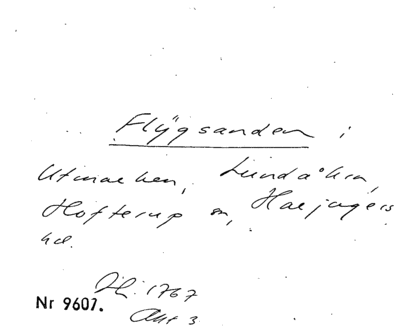 Flygsanden i
Utmarken, Lundåkra,
Hofterup sn, Harjagers
hd.
1767
Akt 3
Nr 9607.